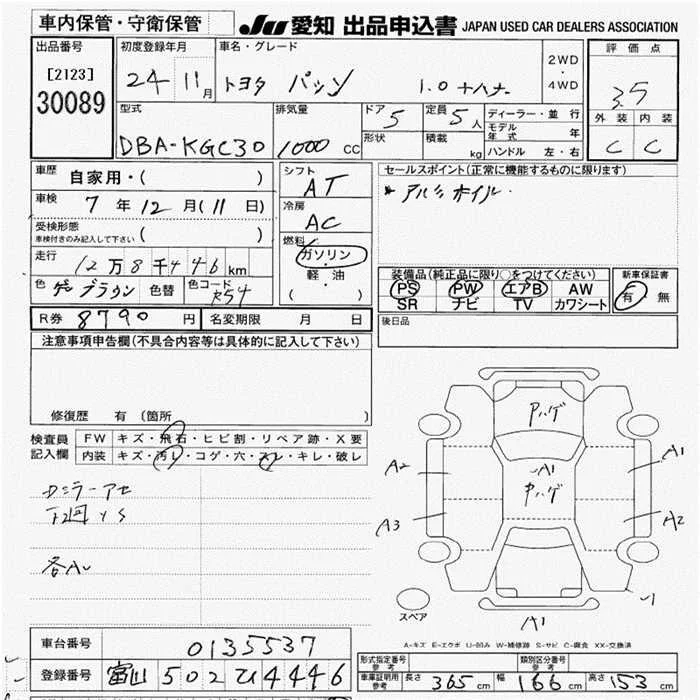 車内保管・守衛保管
JU 愛知 出品申込書 JAPAN USED CAR DEALERS ASSOCIATION
出品番号
[2123]
30089
初度登録年月
24 11月
車名・グレード
トヨタ パッソ 1.0 +ハナ
2WD
・
4WD
評価点
3.5
外装 内装
C C
型式
DBA-KGC30
排気量
1000 CC
ドア 5
形状
定員 5人
積載 kg
ディーラー・並行
モデル年式 年
ハンドル 左・右
車歴 自家用・( )
車検 7年12月(11日)
受検形態
車検付きのみ記入して下さい ( )
走行 12万8千446km
色 ブラウン 色替 色コード R54
シフト
AT
冷房
AC
燃料
ガソリン
軽・油
( )
セールスポイント(正常に機能するものに限ります)
* アルミホイル.
装備品(純正品に限り○をつけてください)
PS PW エアB AW
SR ナビ TV カワシート
新車保証書
有 無
R券 8790円 名変期限 月 日
後日品
注意事項申告欄(不具合内容等は具体的に記入して下さい)
修復歴 有 (箇所 )
検査員記入欄
FW キズ・飛石・ヒビ割・リペア跡・X要
内装 キズ・汚レ・コゲ・穴・スレ・キレ・破レ
Dミラーアセ
下廻 YS
各A
Aハゲ
A1
中ハゲ
A2
A3
A1
A2
A1
スペア
A-キズ E-エクボ U-凹み W-補修跡 S-サビ C-腐食 XX-交換済
車台番号 0135537
登録番号 富山 502 ひ 4446
形式指定番号
参考
類別区分番号
参考
車庫証明用
参考
長さ 365cm 幅 166cm 高さ 153cm